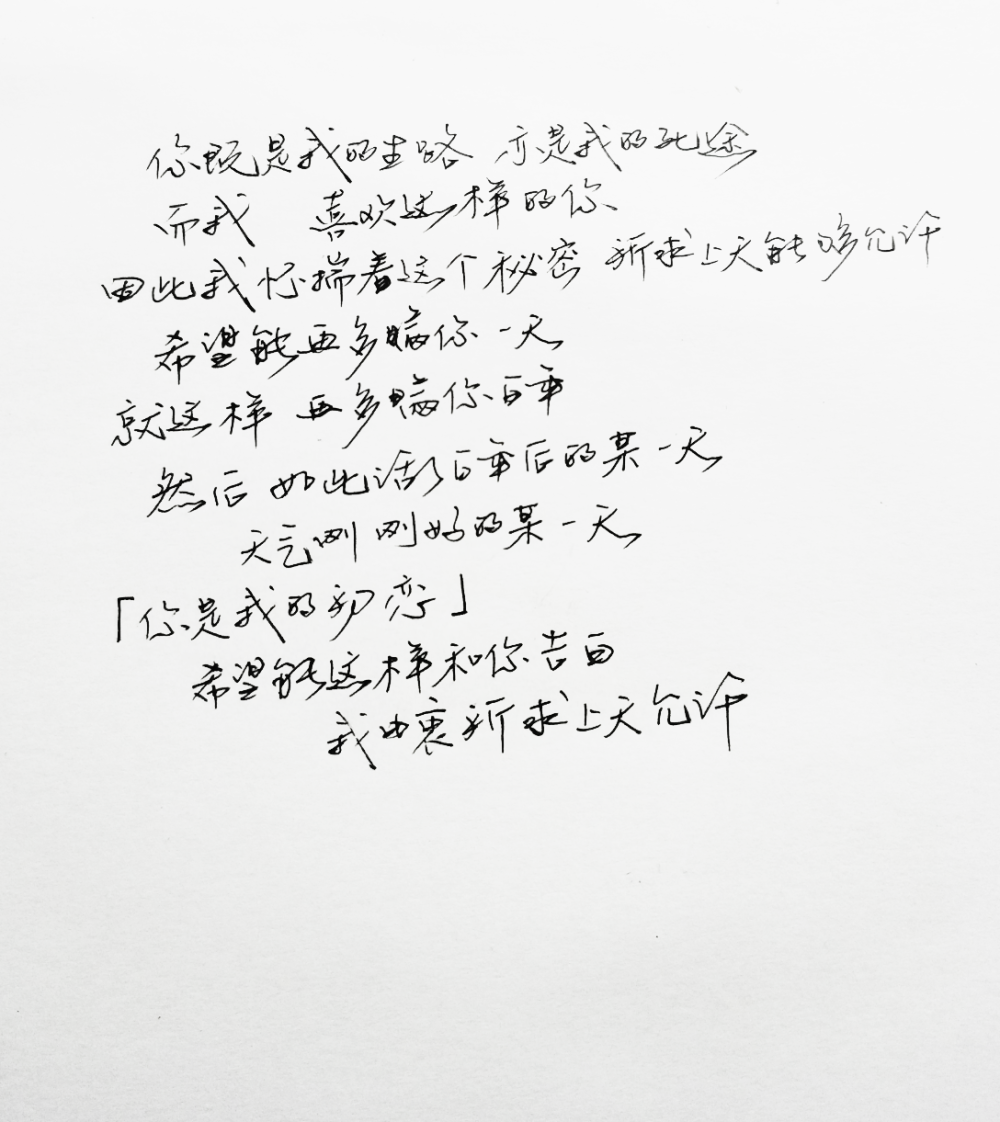 你既是我的生路 亦是我的死途
而我 喜欢这样的你
因此我怀揣着这个秘密 祈求上天能够允许
希望能再多瞒你一天
就这样 再多瞒你百年
然后如此活了百年后的某一天
天气刚刚好的某一天
「你是我的初恋」
希望能这样和你告白
我由衷祈求上天允许